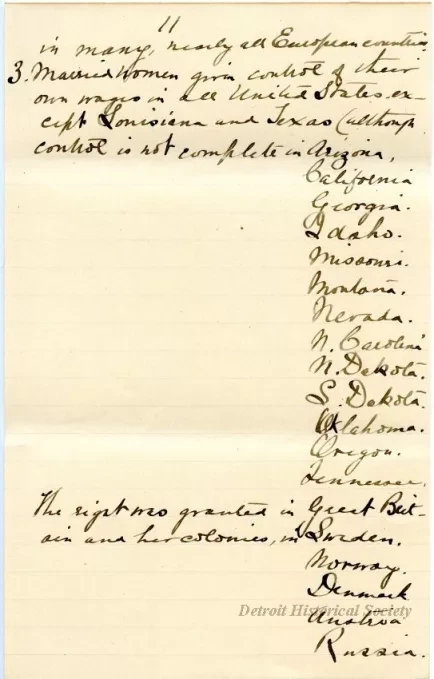 11
in many, nearly all European countries
3. Married women given control of their
own wages in all United States, ex-
cept Louisiana and Texas (although
control is not complete in Arizona,
California
Georgia.
Idaho.
Missouri.
Montana.
Nevada.
N. Carolina
N. Dakota.
S. Dakota.
Oklahoma.
Oregon.
Tennessee.
The right was granted in Great Brit-
ain and her colonies, in Sweden.
Norway.
Denmark
Detroit Historical Society
Austria
Russia.